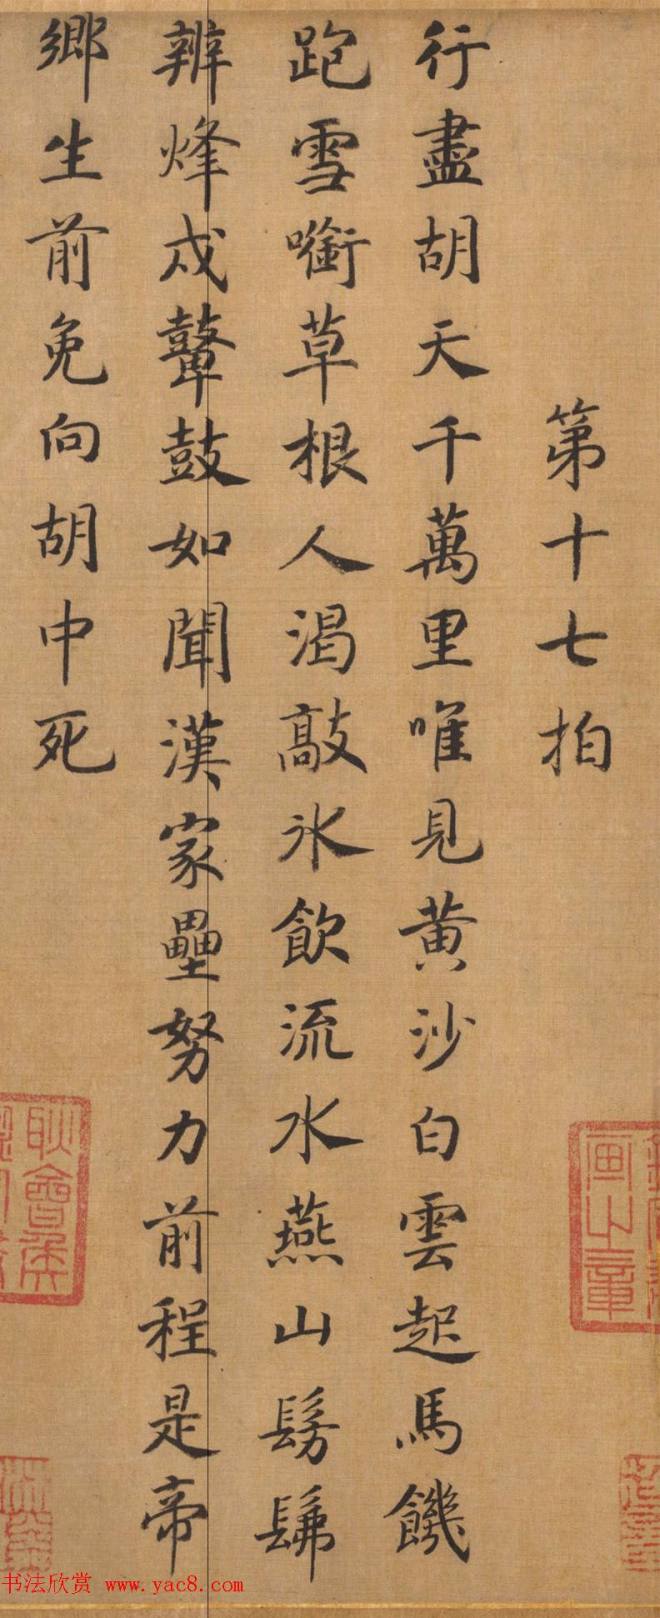 第十七拍
行盡胡天千萬里唯見黄沙白雲起馬饑
跑雪嚙草根人渴敲氷飲流水燕山髣髴
辨烽戍鼙鼓如聞漢家壘努力前程是帝
鄉生前免向胡中死
書法欣赏 www.yac8.com